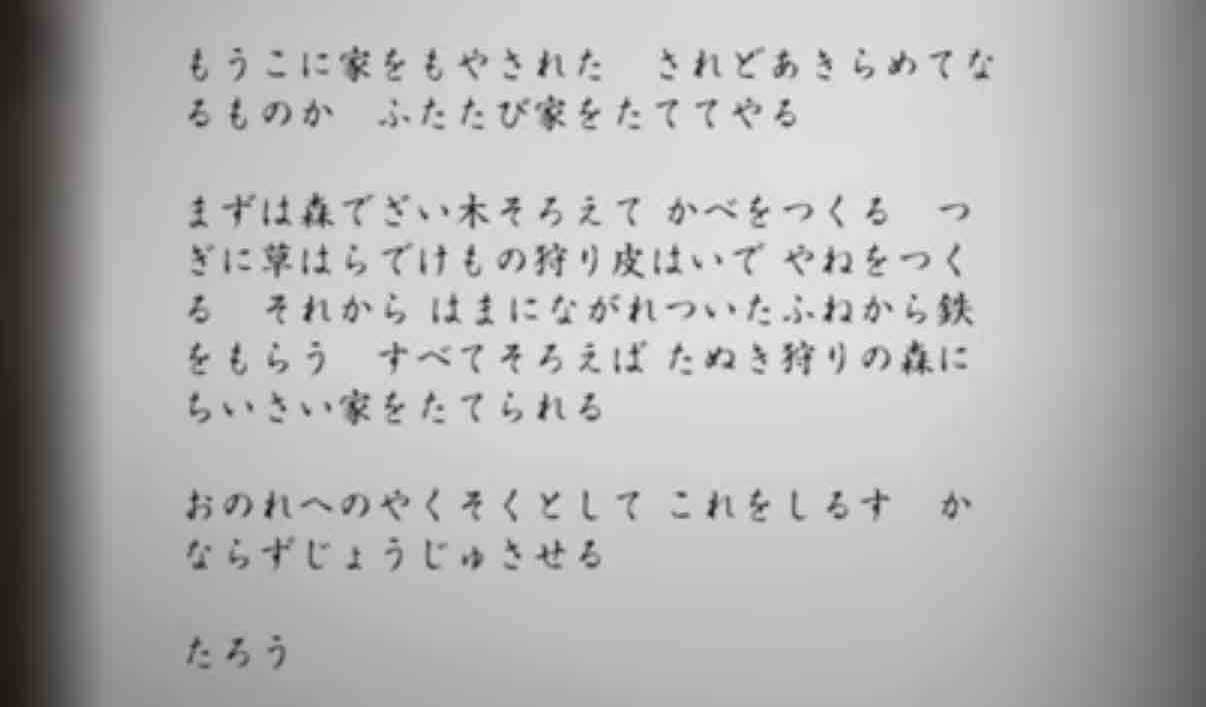 もうこに家をもやされた　されどあきらめてな
るものか　ふたたび家をたててやる
まずは森でざい木そろえて かべをつくる　つ
ぎに草はらでけもの狩り皮はいで やねをつく
る　それから はまにながれついたふねから鉄
をもらう　すべてそろえば たぬき狩りの森に
ちいさい家をたてられる
おのれへのやくそくとして これをしるす　か
ならずじょうじゅさせる
たろう